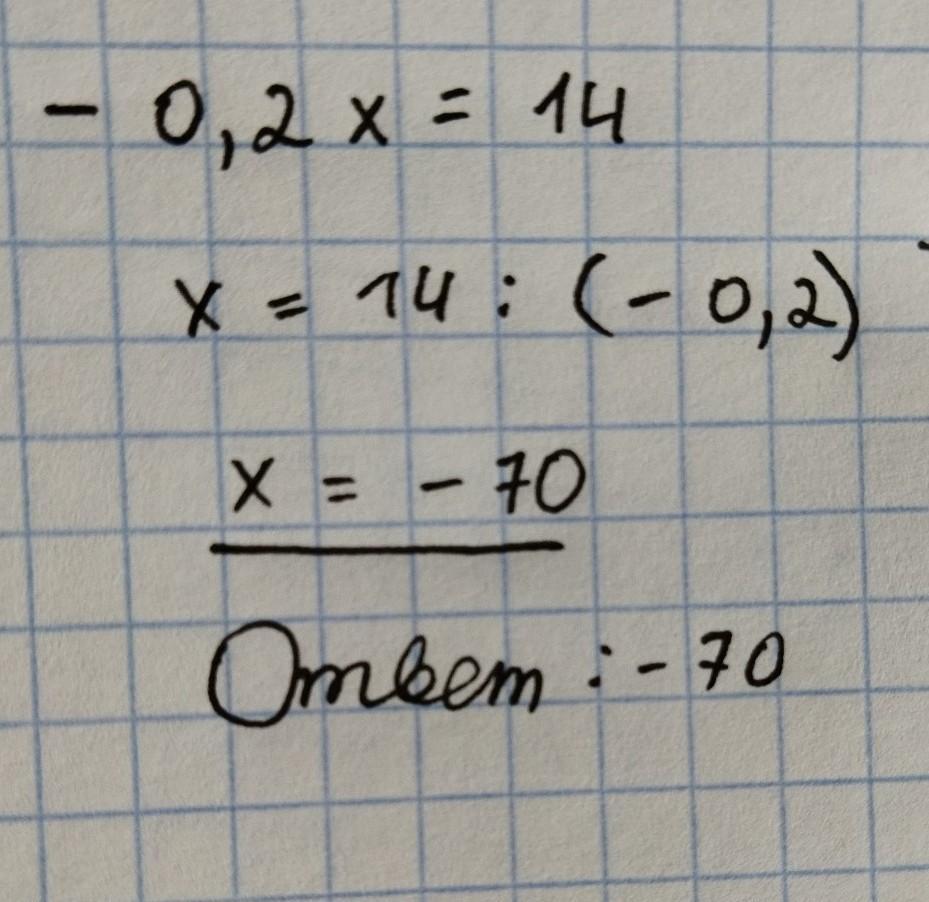 - 0,2 x = 14
x = 14 : (- 0,2)
x = - 70
Ответ : - 70